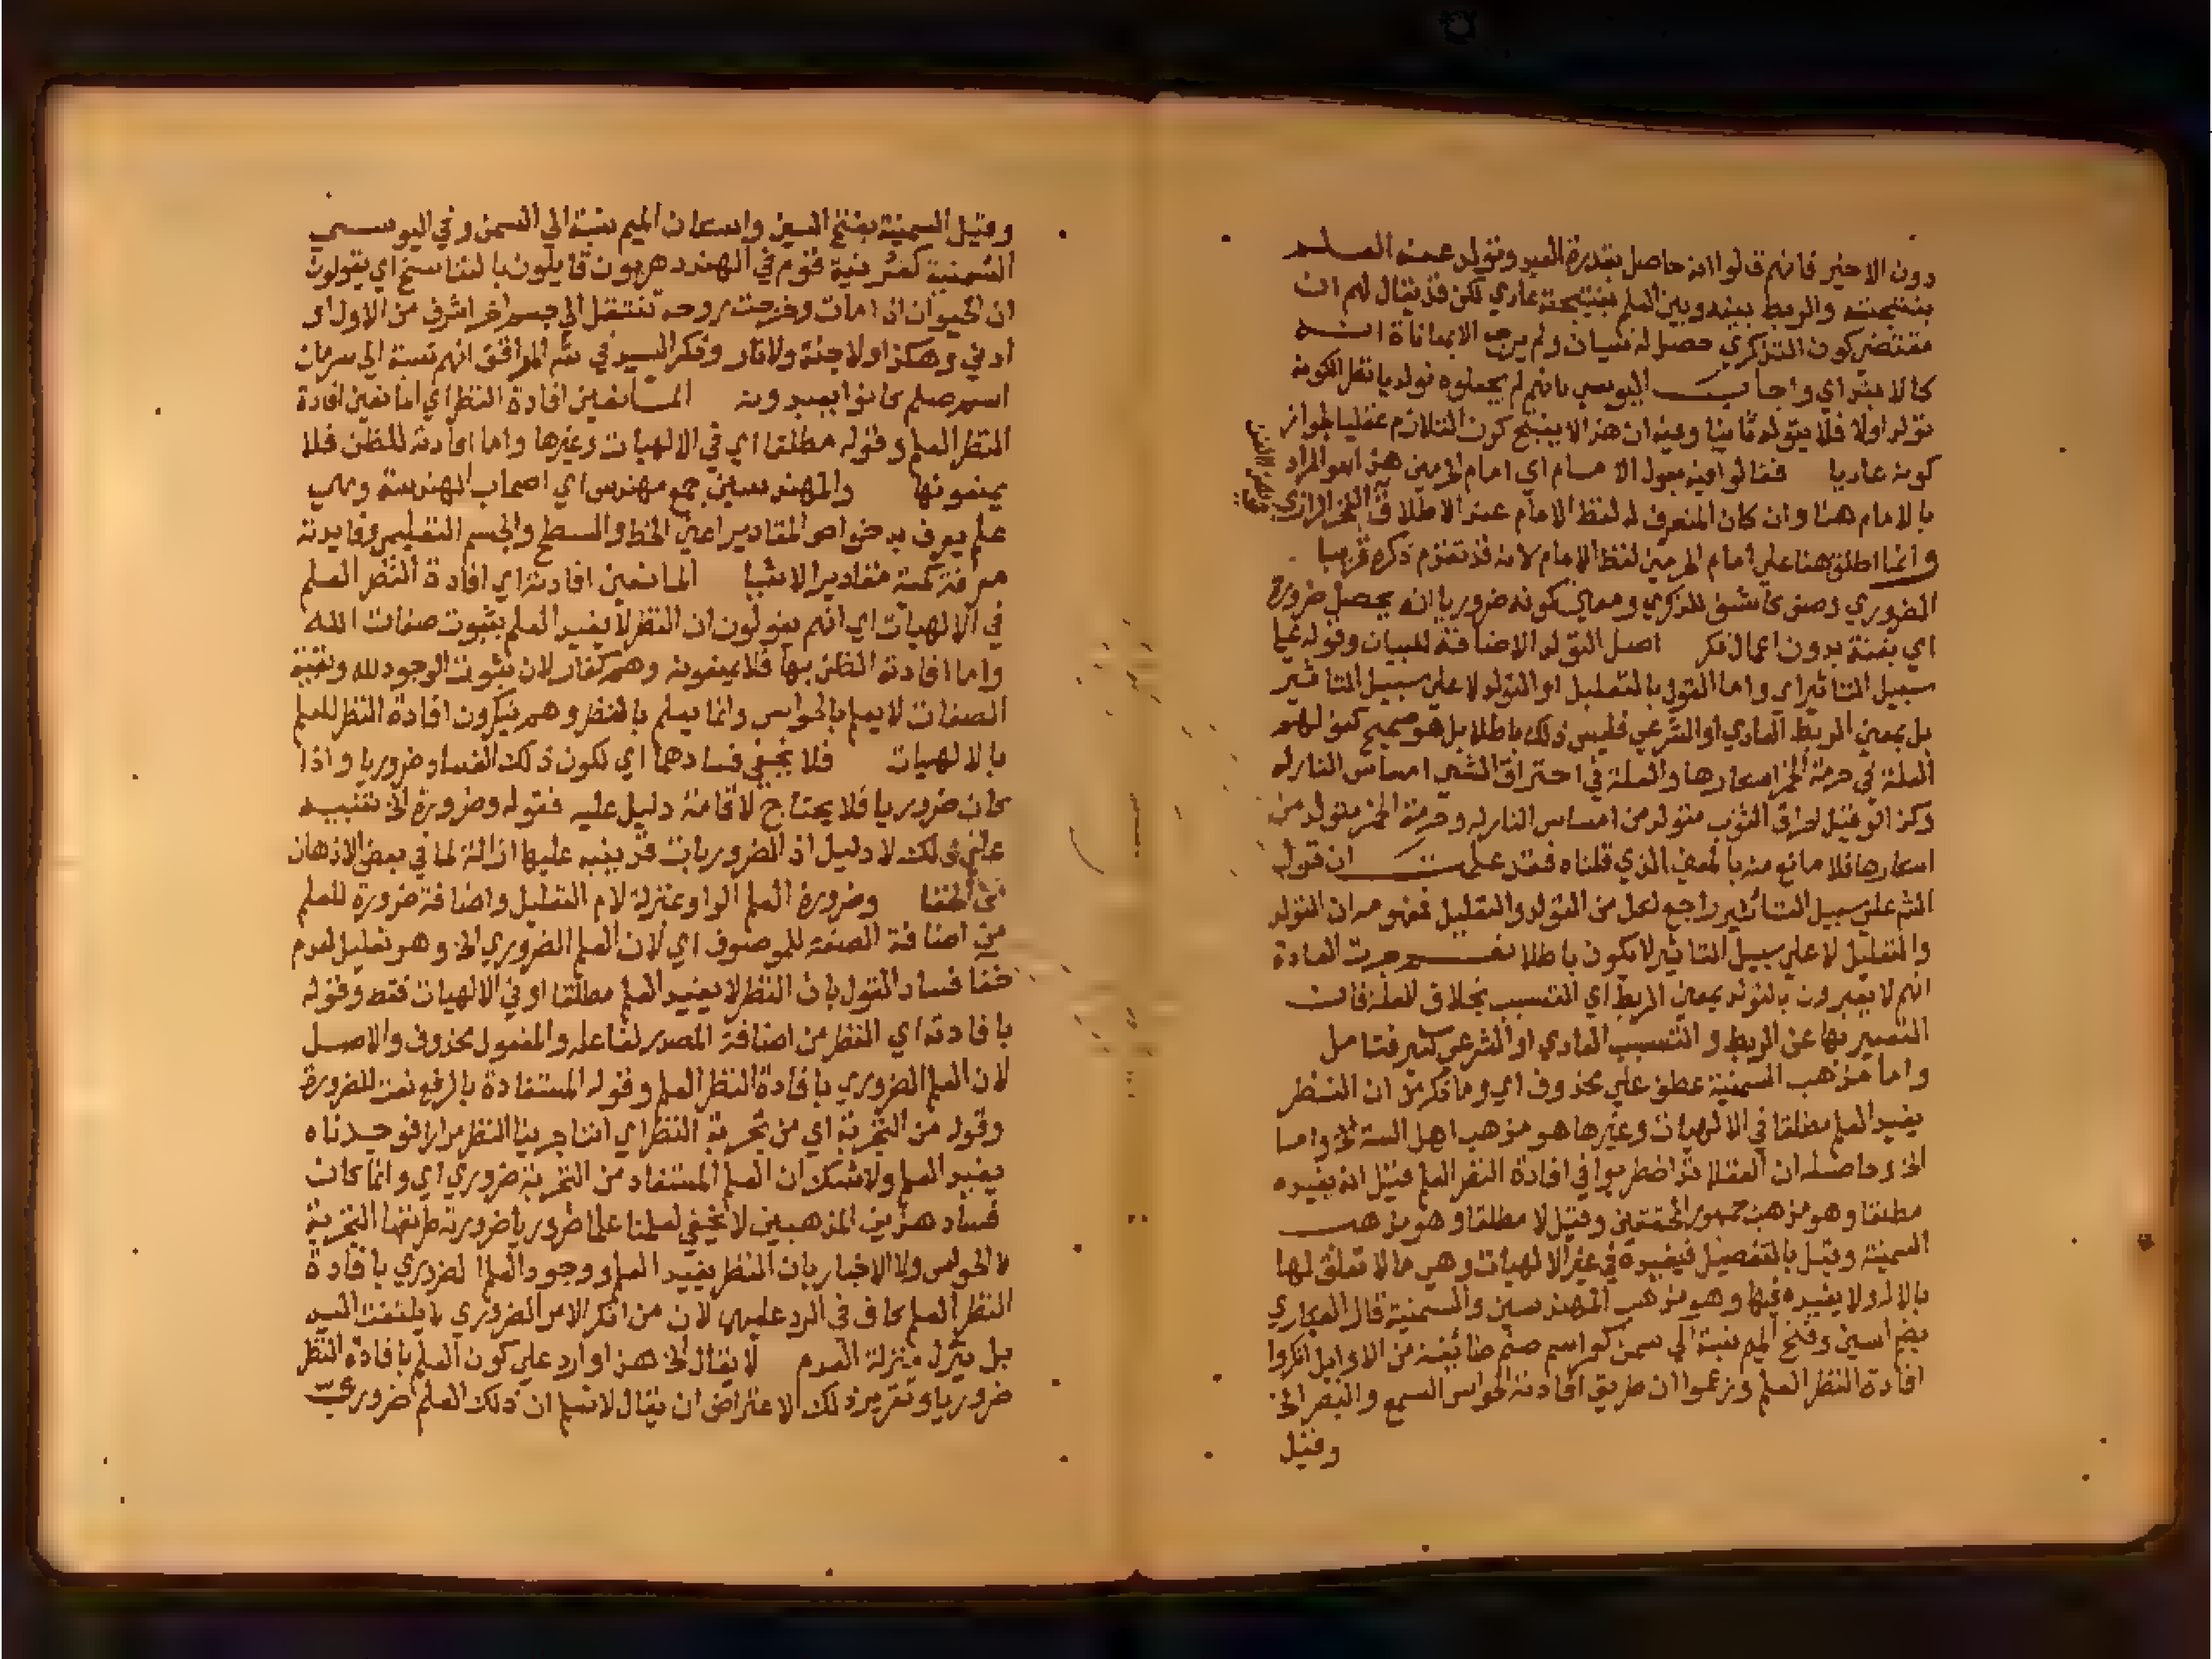 دون الاخير فانهم قالوا انه حاصل بقدرة العبد وتولد عنه العلم
بنتيجته والربط بينه وبين العلم بنتيجته عادي لكن قد يقال لهم ان
مقتضى كون التذكري حصل له نسيان ولم يرجع الا بمعاناة انه
كالابتداي واجاب اليوسي بانهم لم يجعلوه توليديا نظرا لكونه
تولد اولا فلا يتولد ثانيا وفيه ان هذا لا ينتج كون التلازم عقليا لجواز
كونه عاديا فقالوا فيه بقول الامام اي امام الحرمين هذا هو المراد
بالامام هنا وان كان المنصرف له لفظ الامام عند الاطلاق الفخر الرازي
وانما اطلق هنا على امام الحرمين لفظ الامام لانه قد تقدم ذكره قريبا
الضروري وصف كاشف للذكري ومعنى كونه ضروريا انه يحصل ضرورة
اي بغتة بدون اعمال فكر اصل التولد الاضافة للبيان وقوله على
سبيل التاثير اي واما القول بالتعليل او التولد لا على سبيل التاثير
بل بمعنى الربط العادي او الشرعي فليس ذلك باطلا بل هو صحيح كقولهم
العلة في حرمة الخمر اسكارها والعلة في احتراق الشي امساس النار له
وكذا لو قيل احراق الثوب متولد من امساس النار له وحرمة الخمر متولد من
اسكارها فلا مانع منه بالمعنى الذي قلناه فقد علمت ان قول
الشم على سبيل التاثير راجع لكل من التولد والتعليل فمفهومه ان التولد
والتعليل لا على سبيل التاثير لا يكون باطلا نعم جرت العادة
انهم لا يعبرون بالتولد بمعنى الربط اي التسبب بخلاف العلة فان
التعبير بها عن الربط والتسبب العادي او الشرعي كثير فتامل
واما مذهب السمنية عطف على محذوف اي وما ذكر من ان النظر
يفيد العلم مطلقا في الالهيات وغيرها هو مذهب اهل السنة الخ واما
الخ وحاصله ان العقلا قد اضطربوا في افادة النظر العلم فقيل انه يفيده
مطلقا وهو مذهب جمهور المحققين وقيل لا مطلقا وهو مذهب
السمنية وقيل بالتفصيل فيفيده في غير الالهيات وهي ما لا تعلق لها
بالاله ولا يفيده فيها وهو مذهب المهندسين والسمنية قال العكاري
بضم السين وفتح الميم نسبة الى سمن كزاسم صنم طائفة من الاوايل انكروا
افادة النظر العلم وزعموا ان طريق افادته الحواس السمع والبصر الخ
وقيل
وقيل السمنية بفتح السين واسكان الميم نسبة الي السمن وفي اليوسي
السمنية كعرنية قوم في الهند دهريون قايلون بالتناسخ اي يقولون
ان الحيوان اذا مات وخرجت روحه تنتقل الي جسم اخر اشرف من الاول او
ادني وهكذا ولا جنة ولا نار وذكر السيد في شم المواقف انهم نسبة الي سومنات
اسم صنم كانوا يعبدونه المانعين افادة النظر اي المانعين افادة
النظر العلم وقوله مطلقا اي في الالهيات وغيرها واما افادته للظن فلا
يمنعونها والمهندسين جمع مهندس اي اصحاب الهندسة وهي
علم يعرف به خواص المقادير اعني الخط والسطح والجسم التعليمي وفايدته
معرفة كمية مقادير الاشيا المانعين افادته اي افادة النظر العلم
في الالهيات اي انهم يقولون ان النظر لا يفيد العلم بثبوت صفات الله
واما افادته الظن بها فلا يمنعونه وهم كفار لان ثبوت الوجود لله وبقية
الصفات لا يعلم بالحواس وانما يعلم بالنظر وهم ينكرون افادة النظر للعلم
بالالهيات فلا يخفي فسادهما اي لكون ذلك الفساد ضروريا واذا
كان ضروريا فلا يحتاج لاقامة دليل عليه فقوله وضرورة الخ تنبيه
على ذلك لا دليل اذ الضروريات قد ينبه عليها ازالة لما في بعض الاذهان
من الخفا وضرورة العلم الواو بمنزلة لام التعليل واضافة ضرورة للعلم
من اضافة الصفة للموصوف اي لان العلم الضروري الخ وهو تعليل لعدم
خفا فساد القول بان النظر لا يفيد العلم مطلقا او في الالهيات فقط وقوله
بافادته اي النظر من اضافة المصدر لفاعله والمفعول محذوف والاصل
لان العلم الضروري بافادة النظر العلم وقوله المستفادة بالرفع نعت للضرورة
وقوله من التجربة اي من تجربة النظر اي اننا جربنا النظر مرارا فوجدناه
يفيد العلم ولا شك ان العلم المستفاد من التجربة ضروري اي وانما كان
فساد هذين المذهبين لا يخفي لعلمنا علما ضروريا ضرورته طريقها التجربة
لا الحواس ولا الاخبار بان النظر يفيد العلم ووجود العلم الضروري بافادة
النظر العلم كاف في الرد عليهم لان من انكر الامر الضروري لا يلتفت اليه
بل ينزل منزلة العدم لا يقال الخ هذا وارد على كون العلم بافادة النظر
ضروريا وتقرير ذلك الاعتراض ان يقال لا نسلم ان ذلك العلم ضروري